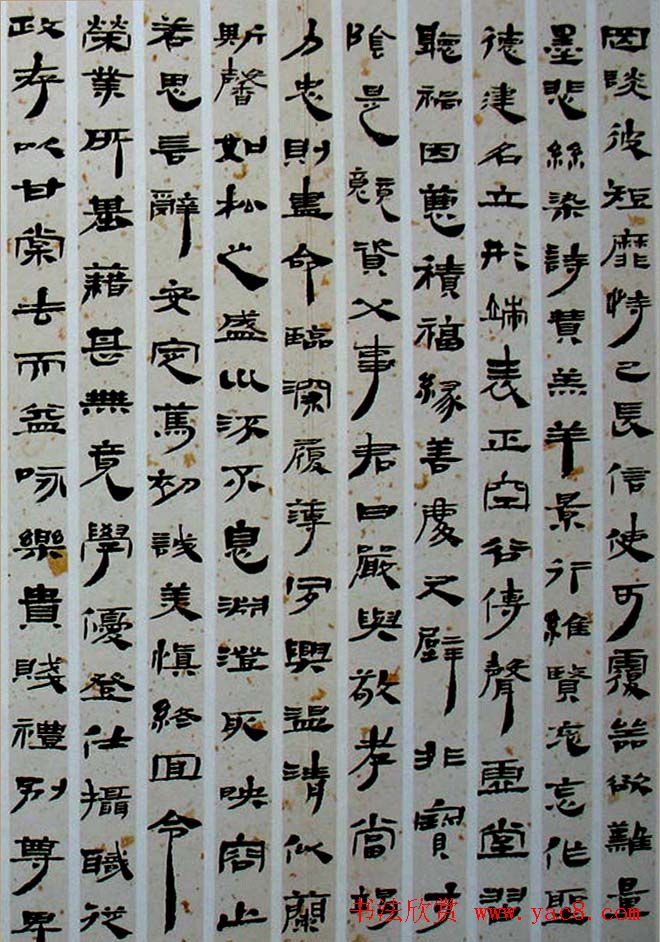 罔談彼短靡恃己長信使可覆器欲難量
墨悲絲染詩贊羔羊景行維賢克念作聖
德建名立形端表正空谷傳聲虛堂習
聽禍因惡積福緣善慶尺璧非寶寸
陰是競資父事君曰嚴與敬孝當竭
力忠則盡命臨深履薄夙興温清似蘭
斯馨如松之盛川流不息淵澄取映容止
若思言辭安定篤初誠美慎終宜令
榮業所基藉甚無竟學優登仕攝職從
政存以甘棠去而益詠樂貴賤禮別尊卑
书法欣赏 www.yac8.com